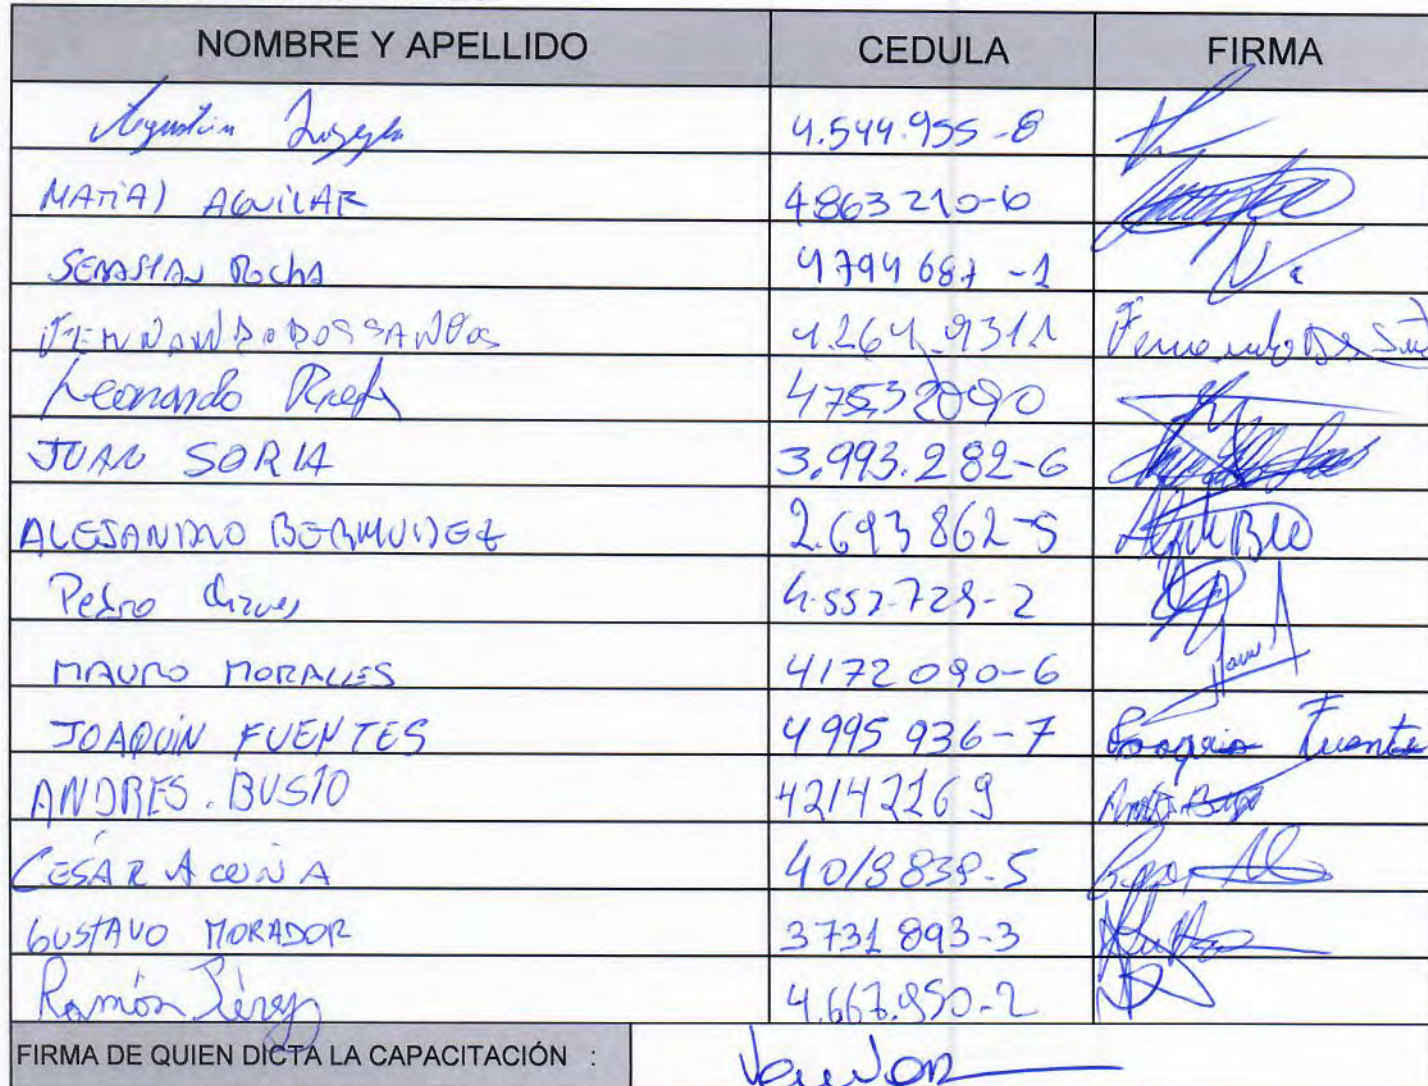 NOMBRE Y APELLIDO CEDULA FIRMA
Agustin 4.544.955-8
MATIAS AGUILAR 4863210-6
SEBASTIAN ROCHA 4794687-1
FERNANDO DOS SANTOS 4.264.9311
Leonardo 47532090
JUAN SORIA 3.993.282-6
ALEJANDRO BERMUDEZ 2.693862-5
Pedro 4.557.728-2
MAURO MORALES 4172090-6
JOAQUÍN FUENTES 4995936-7 Joaquin Fuente
ANDRES.BUSTO 42142269
CESAR ACUÑA 4018838-5
GUSTAVO MORADOR 3731893-3
Ramón Pérez 4.667.950-2
FIRMA DE QUIEN DICTA LA CAPACITACIÓN :